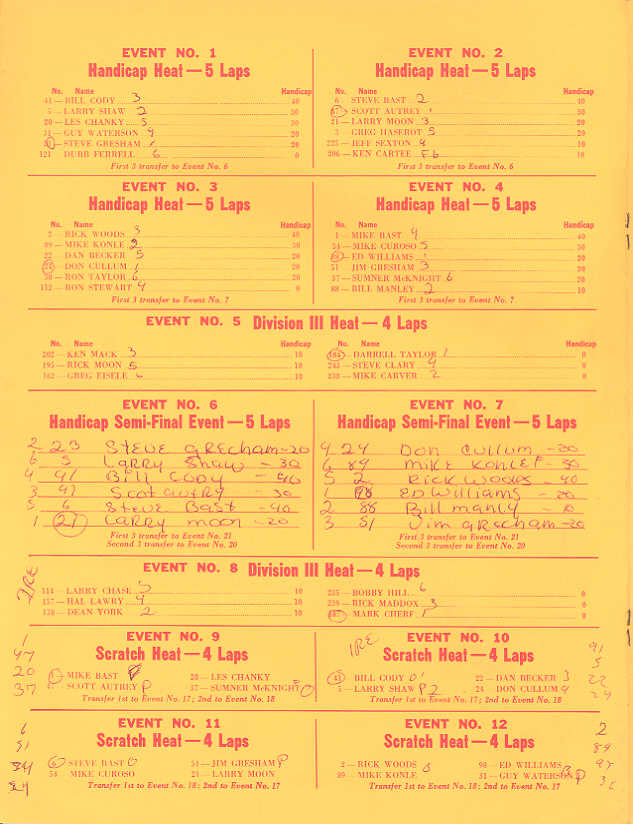 EVENT NO. 1
Handicap Heat — 5 Laps
No. Name Handicap
41 — BILL CODY 3 40
5 — LARRY SHAW 2 30
20 — LES CHANKY 5 30
31 — GUY WATERSON 4 20
STEVE GRESHAM 1 20
121 DUBB FERRELL 6 0
First 3 transfer to Event No. 6
EVENT NO. 2
Handicap Heat — 5 Laps
No. Name Handicap
6 STEVE BAST 2
SCOTT AUTREY 1 30
21 — LARRY MOON 3 20
3 GREG HASEROT 5 20
225 — JEFF SEXTON 4 10
206 — KEN CARTEE F6 10
First 3 transfer to Event No. 6
EVENT NO. 3
Handicap Heat — 5 Laps
No. Name Handicap
2 — RICK WOODS 3 40
89 — MIKE KONLE 2 30
22 DAN BECKER 5 20
24 — DON CULLUM 1 20
50 — RON TAYLOR 6
152 — RON STEWART 4 0
First 3 transfer to Event No. 7
EVENT NO. 4
Handicap Heat — 5 Laps
No. Name Handicap
1 — MIKE BAST 4 40
54 — MIKE CUROSO 5 30
98 — ED WILLIAMS 1 20
51 JIM GRESHAM 3 20
37 — SUMNER McKNIGHT 6 20
88 — BILL MANLEY 2 10
First 3 transfer to Event No. 7
EVENT NO. 5 Division III Heat — 4 Laps
No. Name Handicap
202 — KEN MACK 3 10
195 — RICK MOON 5 10
162 — GREG EISELE 6 10
No. Name Handicap
DARRELL TAYLOR 1 0
243 — STEVE CLARY 4 0
233 — MIKE CARVER 2 0
EVENT NO. 6
Handicap Semi-Final Event — 5 Laps
2 23 STEVE GRECHAM - 20
6 5 LARRY SHAW - 30
4 41 Bill CODY - 40
3 47 Scot AUTRY - 30
5 6 Steve BAST - 40
1 21 LARRY moon - 20
First 3 transfer to Event No. 21
Second 3 transfer to Event No. 20
EVENT NO. 7
Handicap Semi-Final Event — 5 Laps
4 24 Don Cullum - 20
6 89 Mike KONLE - 30
5 2 RICK WOODS - 40
1 98 ED Williams - 20
2 88 Bill manly - 10
3 51 Jim GRECHAM - 20
First 3 transfer to Event No. 21
Second 3 transfer to Event No. 20
EVENT NO. 8 Division III Heat — 4 Laps
IRE
114 — LARRY CHASE 5 10
157 — HAL LAWRY 4 10
138 — DEAN YORK 2 10
235 — BOBBY HILL 6 0
229 — RICK MADDOX 3 0
MARK CHERF 1 0
EVENT NO. 9
Scratch Heat — 4 Laps
1
47
20
37
1 — MIKE BAST
47 SCOTT AUTREY
20 — LES CHANKY
37 — SUMNER McKNIGHT
Transfer 1st to Event No. 17; 2nd to Event No. 18
EVENT NO. 10
Scratch Heat — 4 Laps
IRE
41 BILL CODY
5 — LARRY SHAW 2
22 — DAN BECKER 3
24 DON CULLUM 4
Transfer 1st to Event No. 17; 2nd to Event No. 18
5
22
24
EVENT NO. 11
Scratch Heat — 4 Laps
6
51
54
6 STEVE BAST
54 MIKE CUROSO
51 — JIM GRESHAM
21 — LARRY MOON
Transfer 1st to Event No. 18; 2nd to Event No. 17
EVENT NO. 12
Scratch Heat — 4 Laps
2 — RICK WOODS
89 — MIKE KONLE
98 — ED WILLIAMS
31 — GUY WATERSON
Transfer 1st to Event No. 18; 2nd to Event No. 17
2
89